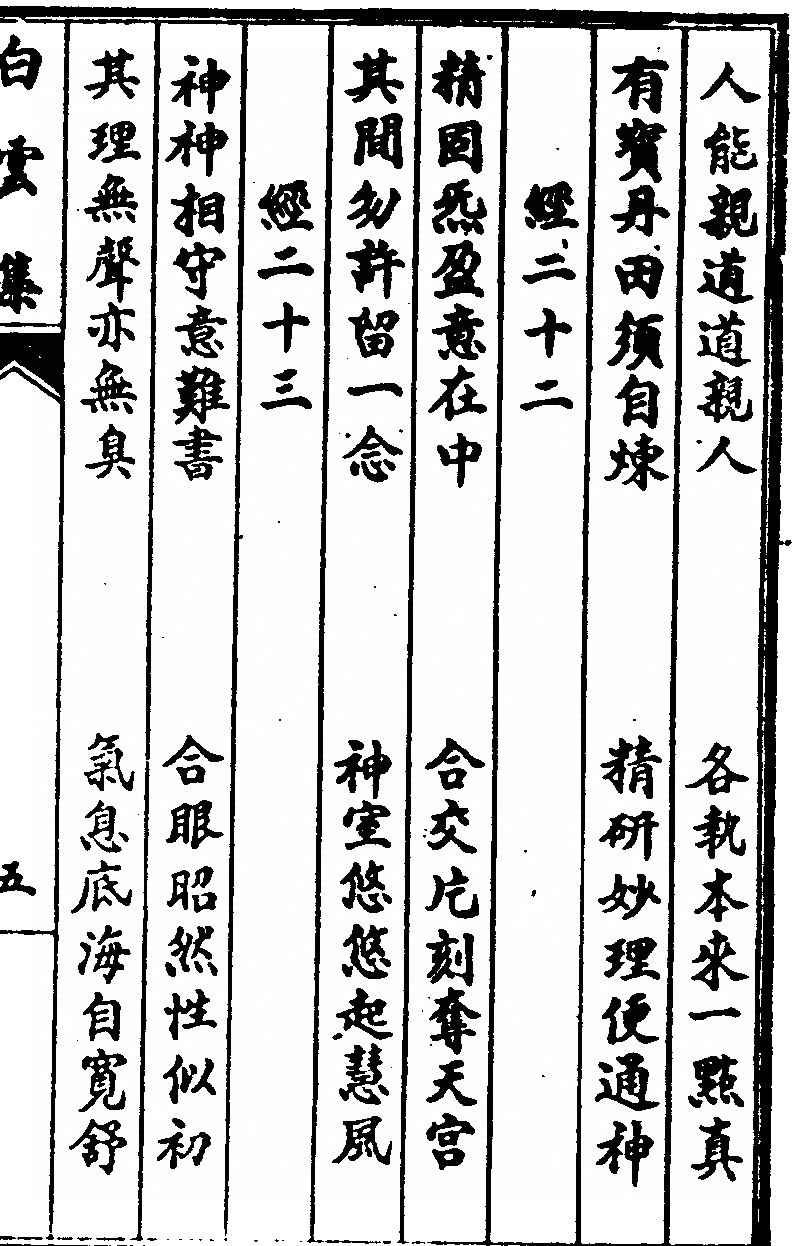 人能親道道親人　各執本來一點真
有寶丹田須自煉　精研妙理便通神
經二十二
精固炁盈意在中　合交片刻奪天宮
其間勿許留一念　神室悠悠起慧風
經二十三
神神相守意難書　合眼昭然性似初
其理無聲亦無臭　氣息底海自寬舒
白雲集
五